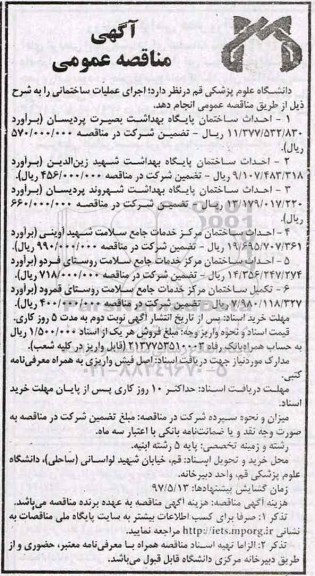 آگهی
مناقصه عمومی
دانشگاه علوم پزشکی قم درنظر دارد؛ اجرای عملیات ساختمانی را به شرح
ذیل از طریق مناقصه عمومی انجام دهد.
۱ - احداث ساختمان پایگاه بهداشت بصیرت پردیسان (برآورد
۱۱/۳۷۷/۵۳۲/۸۳۰ ریال - تضمین شرکت در مناقصه ۵۷۰/۰۰۰/۰۰۰
ریال).
۲ - احداث ساختمان پایگاه بهداشت شهید زین‌الدین (برآورد
۹/۱۰۷/۴۸۳/۳۱۸ ریال - تضمین شرکت در مناقصه ۴۵۶/۰۰۰/۰۰۰ ریال).
۳ - احداث ساختمان پایگاه بهداشت شهروند پردیسان (برآورد
۱۳/۱۷۹/۰۱۷/۲۲۰ ریال - تضمین شرکت در مناقصه ۶۶۰/۰۰۰/۰۰۰
ریال).
۴ - احداث ساختمان مرکز خدمات جامع سلامت شهید آوینی (برآورد
۱۹/۶۹۵/۷۰۷/۳۶۱ ریال - تضمین شرکت در مناقصه ۹۹۰/۰۰۰/۰۰۰ ریال).
۵ - احداث ساختمان مرکز خدمات جامع سلامت روستای فردو (برآورد
۱۴/۳۵۶/۲۴۷/۲۷۴ ریال - تضمین شرکت در مناقصه ۷۱۸/۰۰۰/۰۰۰ ریال).
۶ - تکمیل ساختمان مرکز خدمات جامع سلامت روستای قمرود (برآورد
۷/۹۸۰/۱۱۸/۳۲۷ ریال - تضمین شرکت در مناقصه ۴۰۰/۰۰۰/۰۰۰ ریال).
مهلت خرید اسناد: پس از تاریخ انتشار آگهی نوبت دوم به مدت ۵ روز کاری.
قیمت اسناد و نحوه واریز وجه: مبلغ فروش هر یک از اسناد ۱/۵۰۰/۰۰۰ ریال
به حساب همراه بانک رفاه ۲۱۳۷۷۵۳۵۱۰۰۰۲ (قابل واریز در کلیه شعب).
مدارک موردنیاز جهت دریافت اسناد: اصل فیش واریزی به همراه معرفی‌نامه
کتبی.
مهلت دریافت اسناد: حداکثر ۱۰ روز کاری پس از پایان مهلت خرید
اسناد.
میزان و نحوه سپرده شرکت در مناقصه: مبلغ تضمین شرکت در مناقصه به
صورت وجه نقد و یا ضمانت‌نامه بانکی با اعتبار سه ماه.
رشته و زمینه تخصصی: پایه ۵ رشته ابنیه.
محل خرید و تحویل اسناد: قم، خیابان شهید لواسانی (ساحلی)، دانشگاه
علوم پزشکی قم، واحد دبیرخانه.
زمان گشایش پیشنهادها: ۹۷/۵/۱۳
هزینه آگهی مناقصه: هزینه آگهی مناقصه به عهده برنده مناقصه می‌باشد.
تذکر ۱: صرفا برای کسب اطلاعات بیشتر به سایت پایگاه ملی مناقصات به
نشانی http://iets.mporg.ir مراجعه نمایید.
تذکر ۲: الزاما تهیه اسناد مناقصه همراه با معرفی‌نامه معتبر، حضوری و از
طریق دبیرخانه مرکزی دانشگاه قابل قبول می‌باشد.